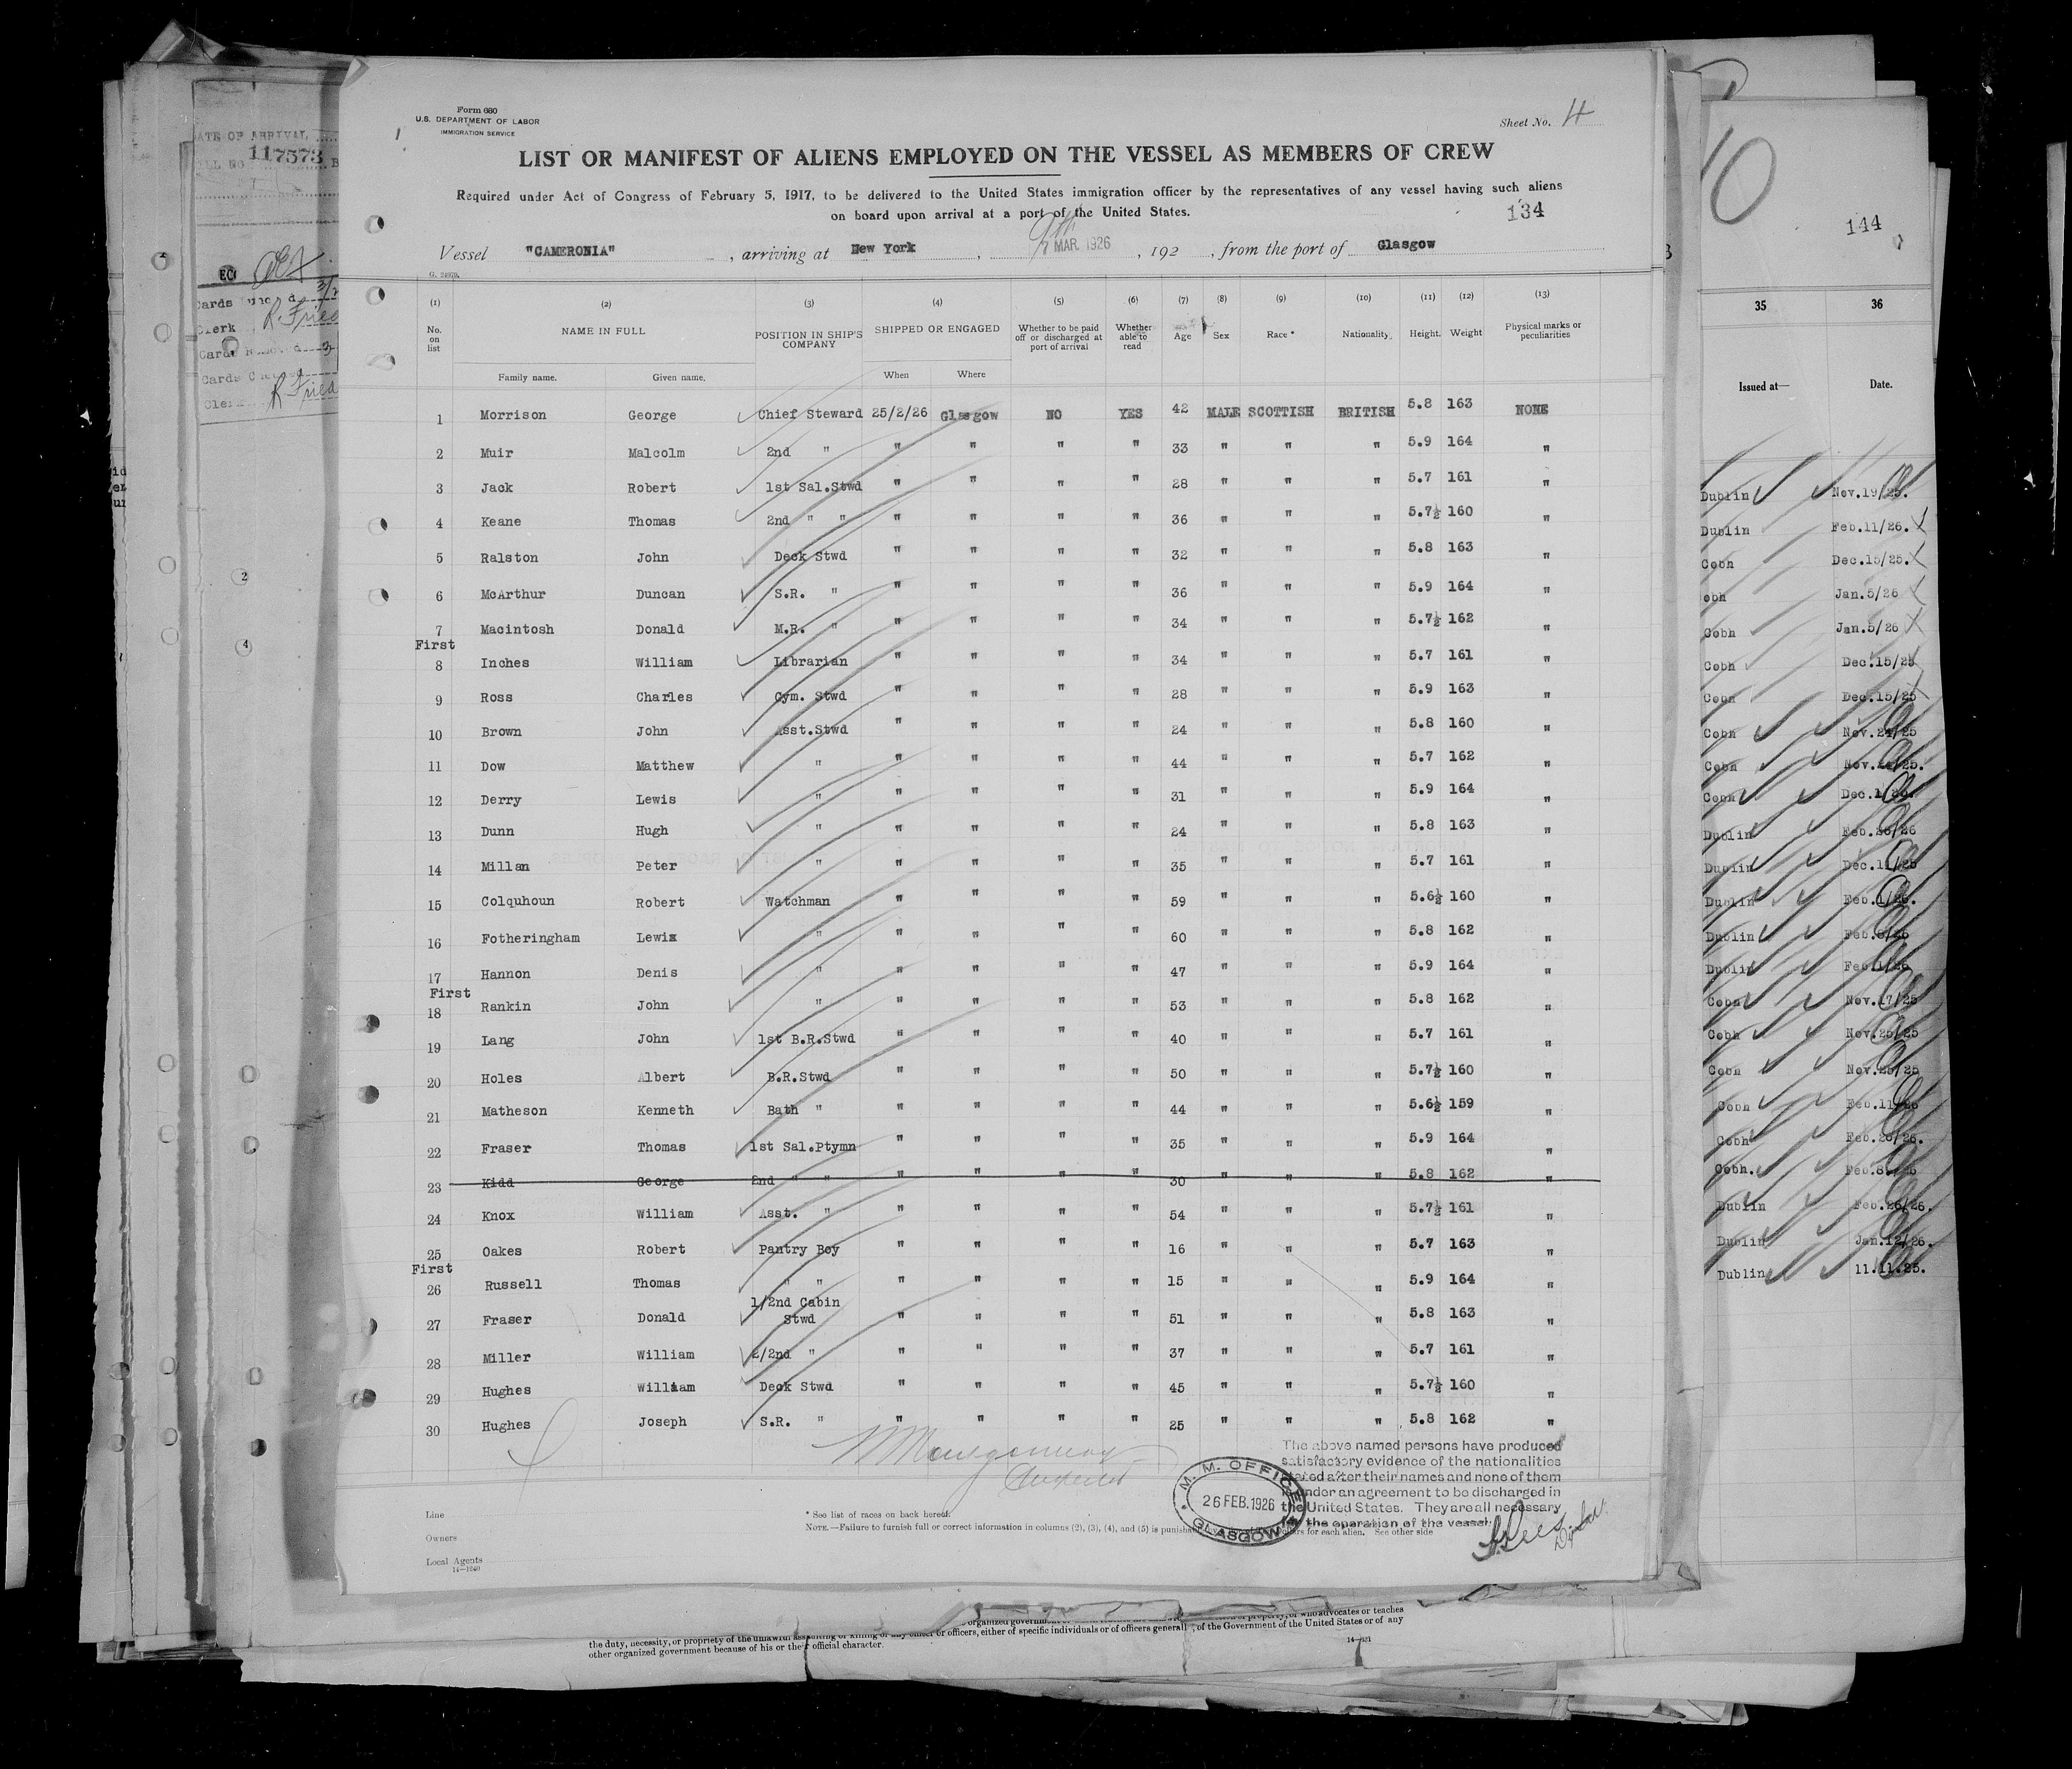 Form 680
U.S. DEPARTMENT OF LABOR
IMMIGRATION SERVICE
Sheet No. 4
LIST OR MANIFEST OF ALIENS EMPLOYED ON THE VESSEL AS MEMBERS OF CREW
Required under Act of Congress of February 5, 1917, to be delivered to the United States immigration officer by the representatives of any vessel having such aliens
on board upon arrival at a port of the United States.
134
Vessel "CAMERONIA", arriving at New York, 9th MAR. 1926, 192, from the port of Glasgow
(1) (2) (3) (4) (5) (6) (7) (8) (9) (10) (11) (12) (13)
No. on list NAME IN FULL POSITION IN SHIP'S COMPANY SHIPPED OR ENGAGED Whether to be paid off or discharged at port of arrival Whether able to read Age Sex Race * Nationality. Height. Weight Physical marks or peculiarities
Family name. Given name. When Where
1 Morrison George Chief Steward 25/2/26 Glasgow NO YES 42 MALE SCOTTISH BRITISH 5.8 163 NONE
2 Muir Malcolm 2nd " " " " " 33 " " " 5.9 164 "
3 Jack Robert 1st Sal.Stwd " " " " 28 " " " 5.7 161 "
4 Keane Thomas 2nd " " " " " " 36 " " " 5.7½ 160 "
5 Ralston John Deck Stwd " " " " 32 " " " 5.8 163 "
6 McArthur Duncan S.R. " " " " " 36 " " " 5.9 164 "
7 Macintosh Donald M.R. " " " " " 34 " " " 5.7½ 162 "
First
8 Inches William Librarian " " " " 34 " " " 5.7 161 "
9 Ross Charles Gym. Stwd " " " " 28 " " " 5.9 163 "
10 Brown John Asst.Stwd " " " " 24 " " " 5.8 160 "
11 Dow Matthew " " " " " 44 " " " 5.7 162 "
12 Derry Lewis " " " " " 31 " " " 5.9 164 "
13 Dunn Hugh " " " " " 24 " " " 5.8 163 "
14 Millan Peter " " " " " 35 " " " 5.7 161 "
15 Colquhoun Robert Watchman " " " " 59 " " " 5.6½ 160 "
16 Fotheringham Lewis " " " " " 60 " " " 5.8 162 "
17 Hannon Denis " " " " " 47 " " " 5.9 164 "
First
18 Rankin John " " " " " 53 " " " 5.8 162 "
19 Lang John 1st B.R.Stwd " " " " 40 " " " 5.7 161 "
20 Holes Albert B.R.Stwd " " " " 50 " " " 5.7½ 160 "
21 Matheson Kenneth Bath " " " " " 44 " " " 5.6½ 159 "
22 Fraser Thomas 1st Sal.Ptymn " " " " 35 " " " 5.9 164 "
23 Kidd George 2nd " " " " " " 30 " " " 5.8 162 "
24 Knox William Asst. " " " " " 54 " " " 5.7½ 161 "
25 Oakes Robert Pantry Boy " " " " 16 " " " 5.7 163 "
First
26 Russell Thomas " " " " " " 15 " " " 5.9 164 "
27 Fraser Donald 1/2nd Cabin Stwd " " " " 51 " " " 5.8 163 "
28 Miller William 2/2nd " " " " " 37 " " " 5.7 161 "
29 Hughes William Deck Stwd " " " " 45 " " " 5.7½ 160 "
30 Hughes Joseph S.R. " " " " " 25 " " " 5.8 162 "
The above named persons have produced
satisfactory evidence of the nationalities
stated after their names and none of them
is under an agreement to be discharged in
the United States. They are all necessary
for the operation of the vessel.
M. M. OFFICE
26 FEB. 1926
GLASGOW
Line
Owners
Local Agents
14—1240
* See list of races on back hereof.
NOTE.—Failure to furnish full or correct information in columns (2), (3), (4), and (5) is punishable dollars for each alien. See other side
117573
Cards
Clerk R. Fried
Cards
Clerk R. Fried
144
35 36
Issued at— Date.
Dublin Nov.19/25.
Dublin Feb.11/26.
Cobh Dec.15/25.
obh Jan.5/26
Cobh Jan.5/26
Cobh Dec.15/25
Cobh Dec.15/25
Cobh Nov.24/25
Cobh Nov.24/25.
Cobh
Dublin Feb.26/26
Dublin Dec.11/25
Dublin Feb.1/26.
Dublin
Dublin
Cobh Nov.17/25
Cobh Nov.25/25
Cobh Nov.25/25
Cobh
Cobh Feb.26/26.
Cobh.
Dublin Feb.26/26.
Dublin Jan.12/26.
Dublin 11.11.25.
the duty, necessity, or propriety of the unlawful assaulting or killing of any officer or officers, either of specific individuals or of officers generally, of the Government of the United States or of any
other organized government because of his or their official character.